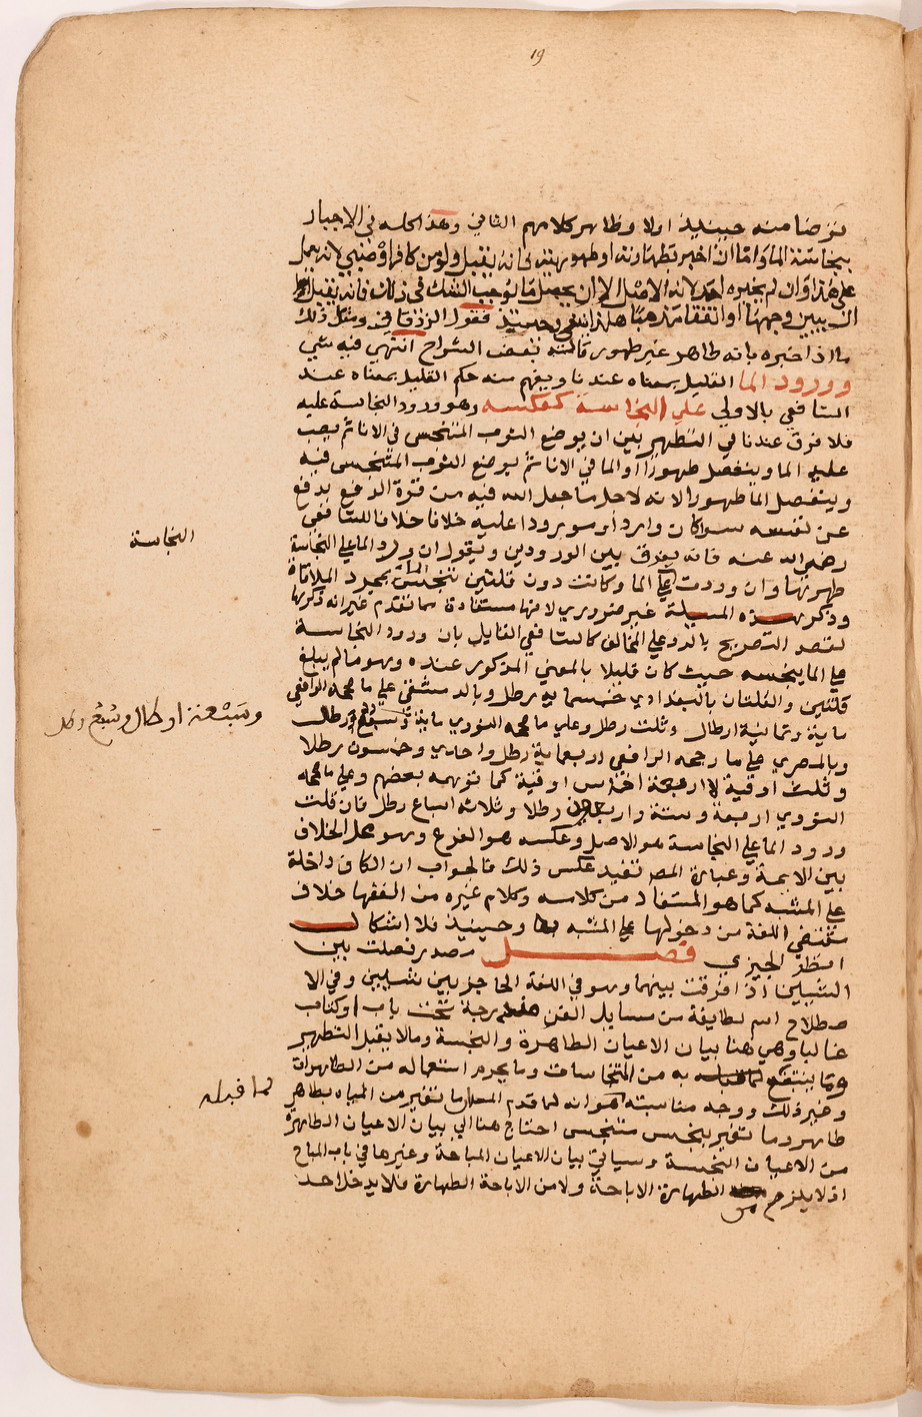 19
توضا منه حينيذ اولا وظاهر كلامهم الثاني وهذا كله في الاخبار
بنجاسة الما واما ان اخبر بطهارته او طهوريته فانه يقبل ولو من كافر او صبي لانه يحمل
على هذا وان لم يخبره احد لانه الاصل الا ان يحصل ما يوجب الشك في ذلك فانه يقبل
ان يبين وجهها او اتفقا مذهبا هذا وحينيذ فقول الزرقاني ومثل ذلك
ما اذا اخبره بانه طاهر غير طهور قالته بعض الشراح انتهي فيه شي
وورود الما القليل بمعناه عندنا ويفهم منه حكم القليل بمعناه عند
الشافعي بالاولي علي النجاسة كعكسه وهو ورود النجاسة عليه
فلا فرق عندنا في التطهير بين ان يوضع الثوب المتنجس في الانا ثم يصب
عليه الما وينفصل طهورا او الما في الانا ثم يوضع الثوب المتنجس فيه
وينفصل الما طهورا لانه لاجل ما جعل الله فيه من قوة الدفع يدفع
عن نفسه سوا كان واردا او مورودا عليه خلافا للشافعي
رضي الله عنه فانه يفرق بين الورودين ويقول ان ورد الما علي النجاسة
طهرتها وان وردت علي الما وكانت دون قلتين تنجس الما بمجرد الملاقاة
وذكر هذه المسيلة غير ضروري لانها مستفادة مما تقدم غير انه ذكرها
لقصد التصريح بالرد علي المخالف كالشافعي القايل بان ورود النجاسة
علي الما ينجسه حيث كان قليلا بالمعني المذكور عنده وهو ما لم يبلغ
قلتين والقلتان بالبغدادي خمسماية رطل وبالدمشقي علي ما صححه الرافعي
ماية وثمانية ارطال وثلث رطل وعلي ما صححه النووي ماية وسبعة ارطال
وبالمصري علي ما رجحه الرافعي اربعماية رطل واحدي وخمسون رطلا
وثلث اوقية لا اربعة اخماس اوقية كما توهمه بعضهم وعلي ما صححه
النووي اربعة وستة واربعون رطلا وثلاثة اسباع رطل فان قلت
ورود الما علي النجاسة هو الاصل وعكسه هو الفرع وهو محل الخلاف
بين الايمة وعبارة المص تفيد عكس ذلك فالجواب ان الكاف داخلة
علي المشبه كما هو المستفاد من كلامه وكلام غيره من الفقها خلاف
مقتضي اللغة من دخولها علي المشبه به وحينيذ فلا اشكال
انظر الجيزي فصل مصدر فصلت بين
الشيين اذا فرقت بينهما وهو في اللغة الحاجز بين شييين وفي الا
صطلاح اسم لطايفة من مسايل الفن مندرجة تحت باب او كتاب
غالبا وهي هنا بيان الاعيان الطاهرة والنجسة وما لا يقبل التطهير
وما ينتفع به من المتنجاسات وما يحرم استعماله من الطاهرات
وغير ذلك ووجه مناسبته هو انه لما قدم ان ما تغير من المياه بطاهر
طاهر وما تغير بنجس متنجس احتاج هنا الي بيان الاعيان الطاهرة
من الاعيان النجسة وسياتي بيان الاعيان المباحة وغيرها في باب المباح
اذ لا يلزم من الطهارة الاباحة ولا من الاباحة الطهارة فلا يدخل احد
النجاسة
وسبعة ارطال وسبع رطل
لما قبله